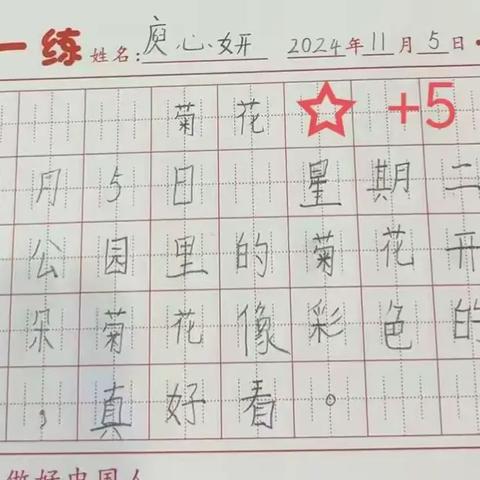 一练 姓名:庾心妍 2024年11月5日
菊花 ☆ +5
月5日 星期二
公园里的菊花开
朵菊花像彩色的
，真好看。
做好中国人